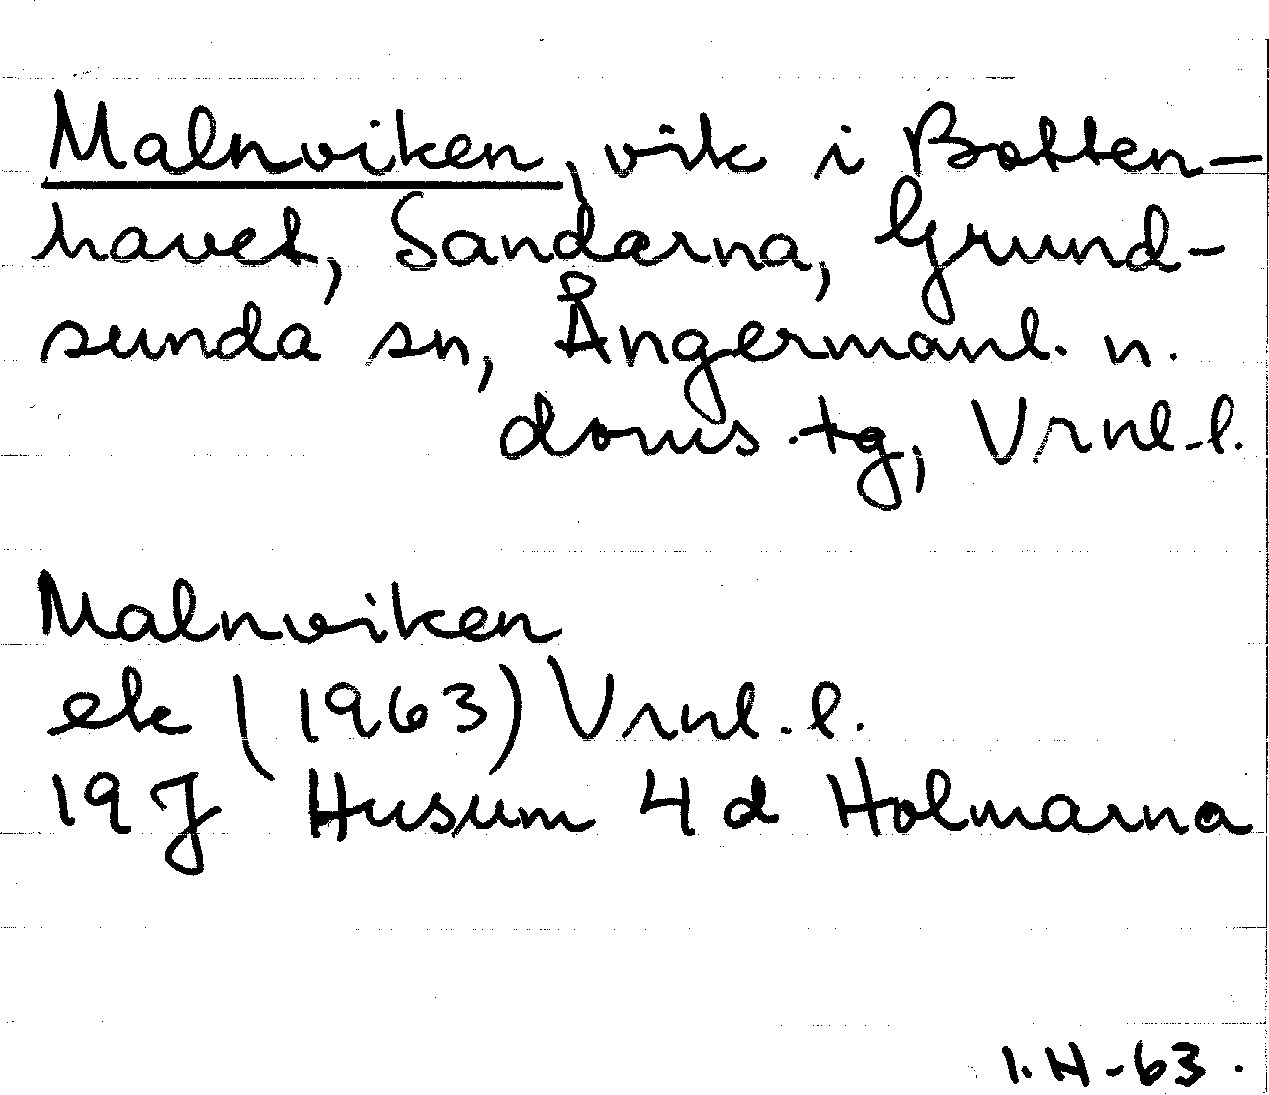 Malnviken, vik i Botten-
havet, Sandarna, Grund-
sunda sn, Ångermanl. n.
doms.tg, Vrnl.l.
Malnviken
ek (1963) Vrnl.l.
19J Husum 4d Holmarna
I.H-63.